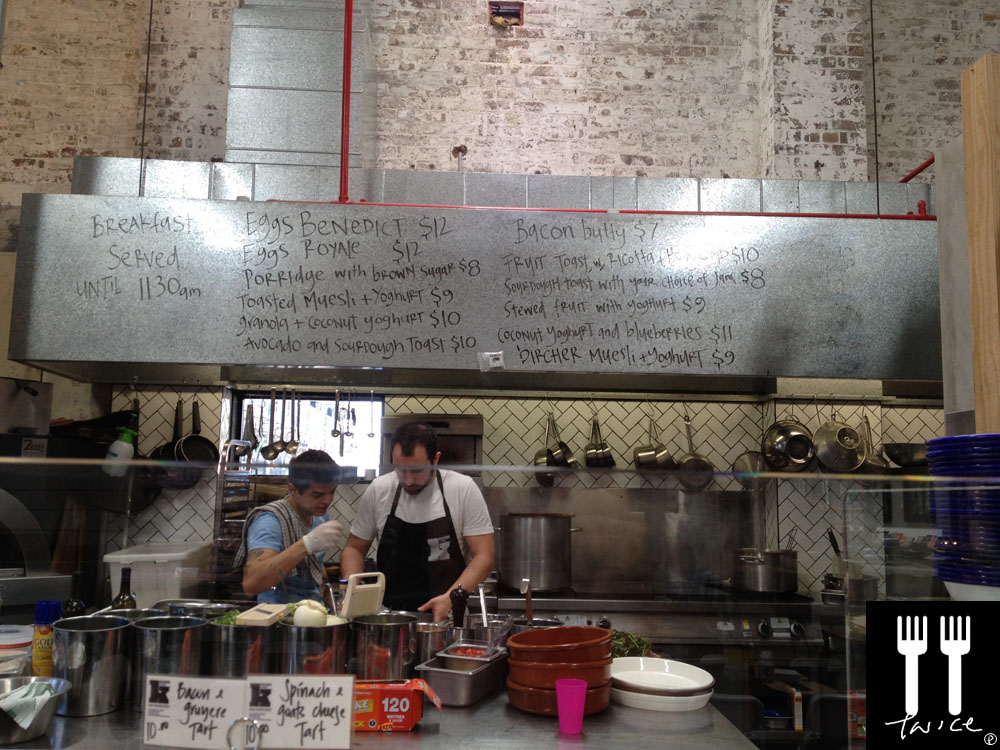 Breakfast
Served
UNTIL 1130am
Eggs BENEDICT $12
Eggs ROYALE $12
PORRIDGE with brown sugar $8
Toasted Muesli + Yoghurt $9
granola + coconut yoghurt $10
Avocado and Sourdough Toast $10
Bacon butty $7
FRUIT Toast w. Ricotta + $10
Sourdough toast with your choice of jam $8
Stewed fruit with yoghurt $9
coconut yoghurt and blueberries $11
BIRCHER Muesli + yoghurt $9
Bacon &
gruyere
Tart
10.
Spinach &
goats cheese
Tart
10.
120
METRES
twice
P